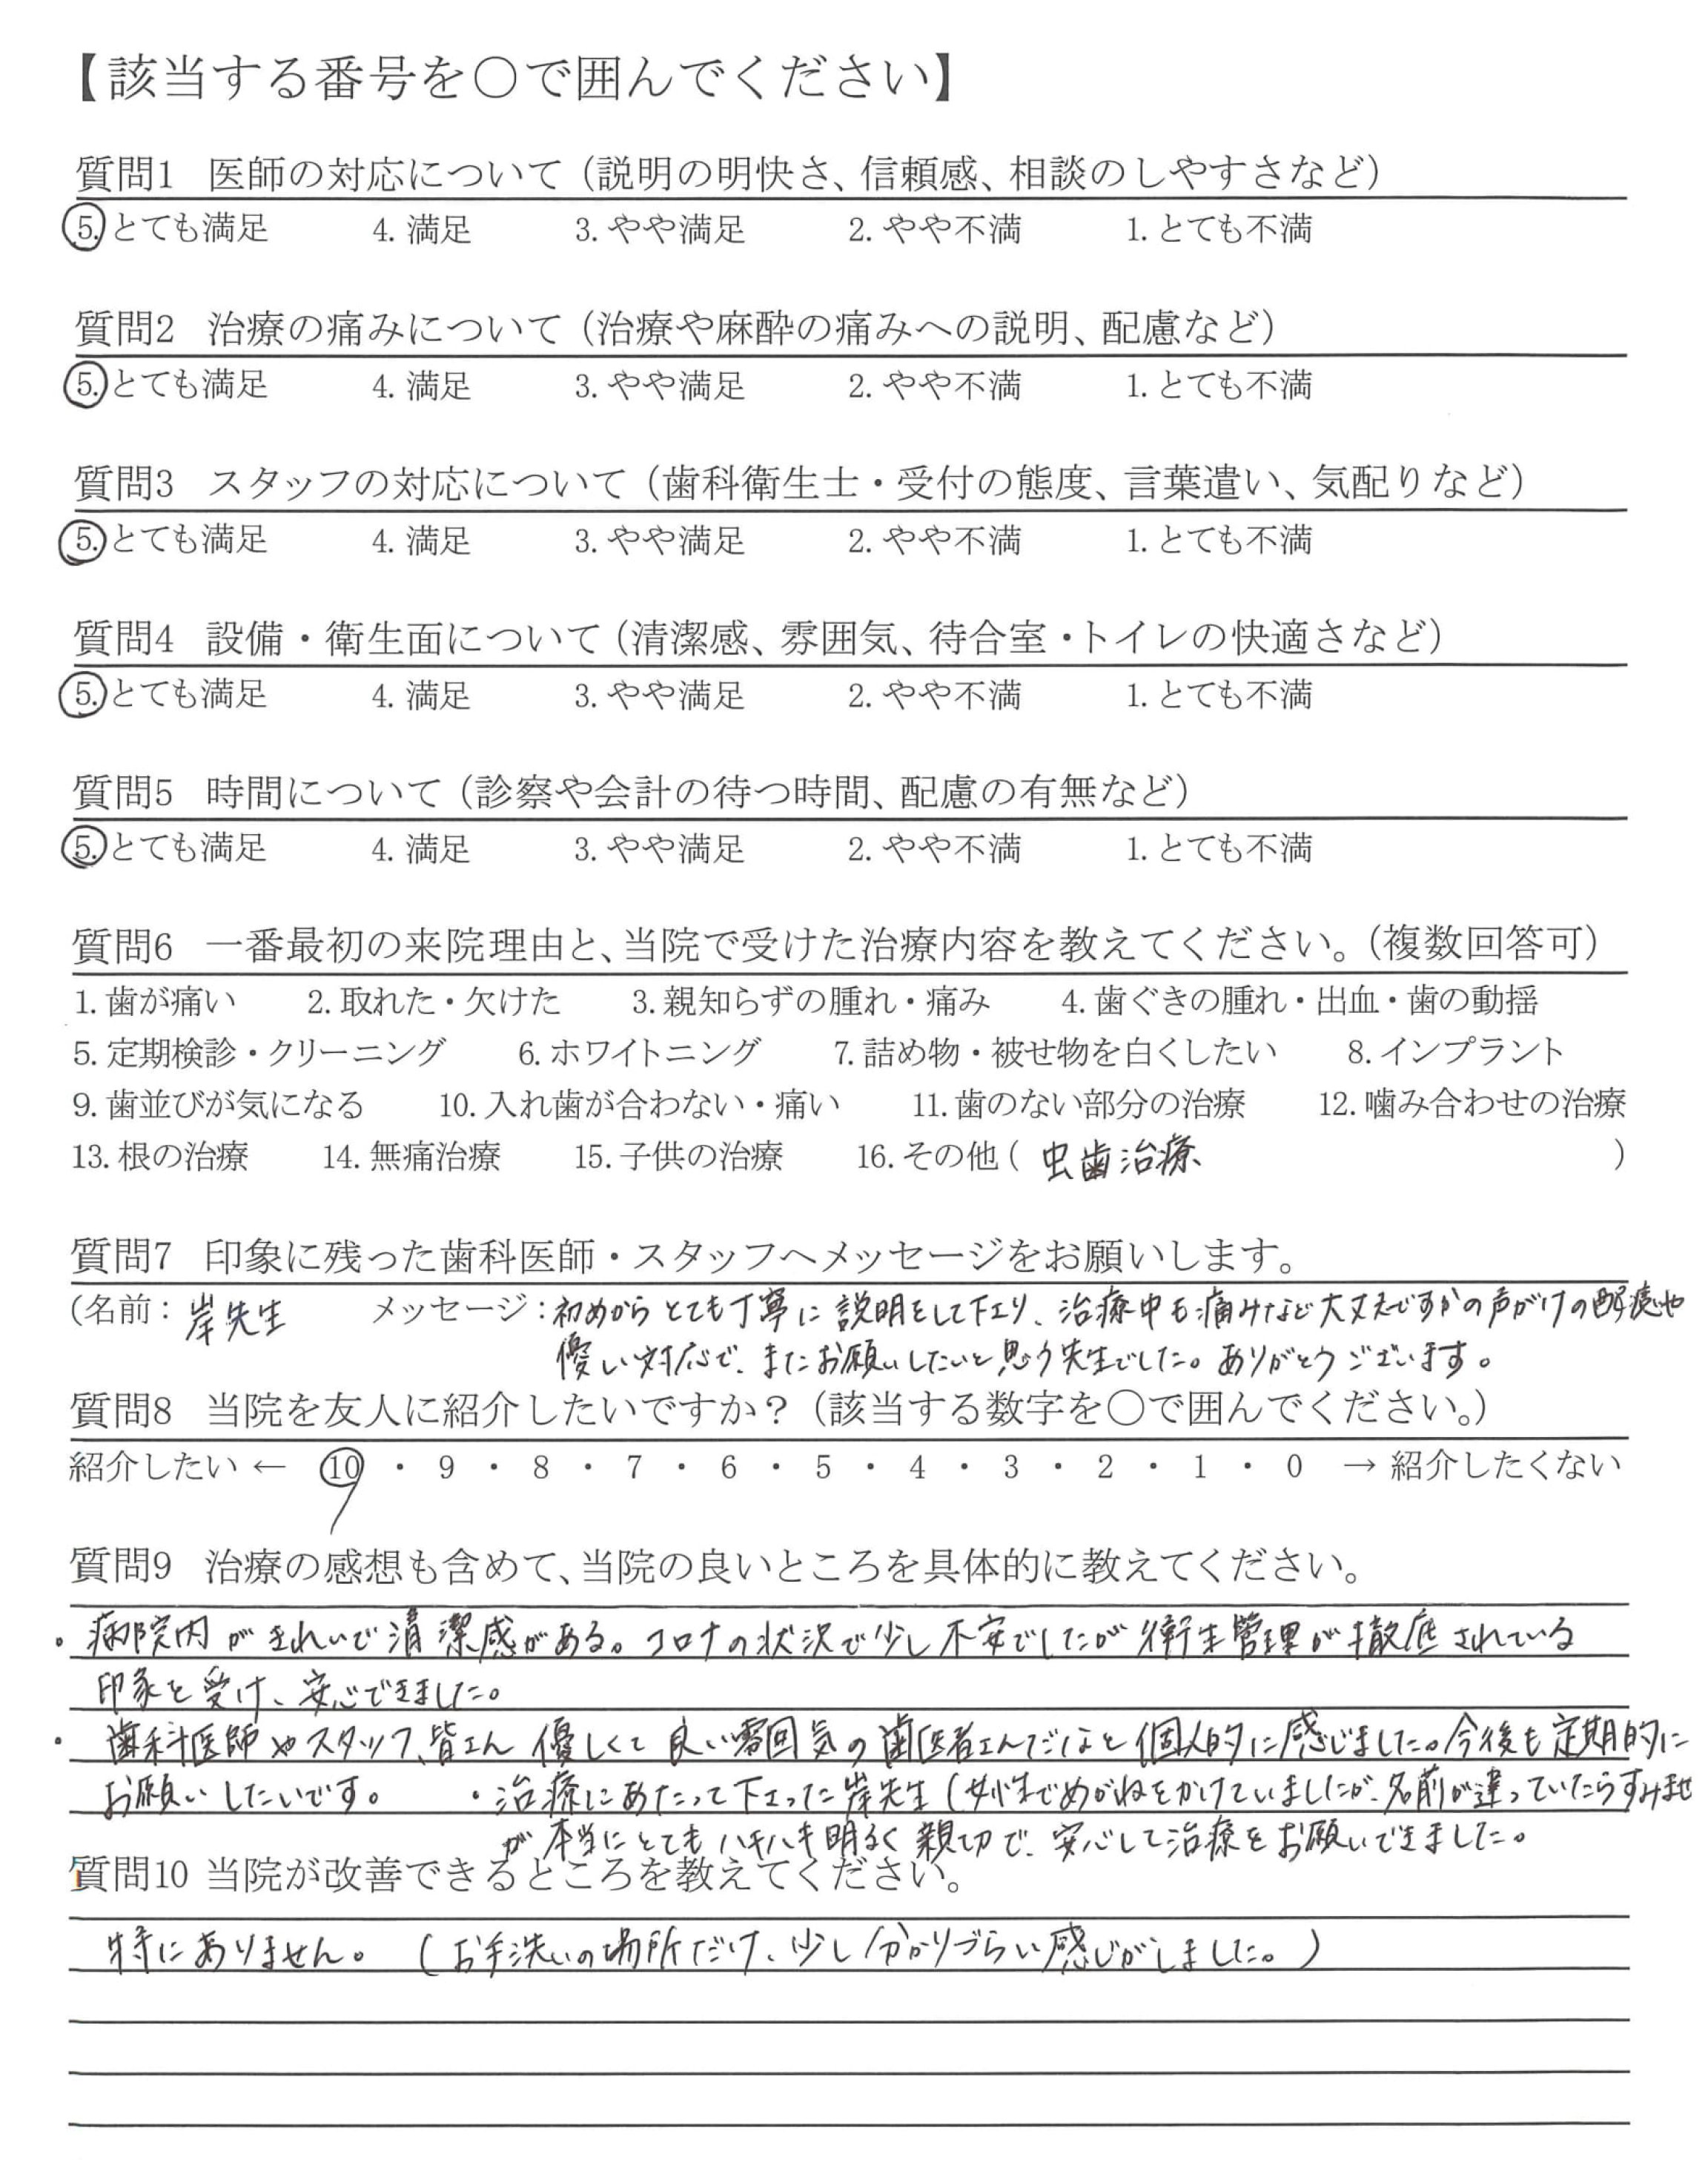 【該当する番号を○で囲んでください】
質問1 医師の対応について（説明の明快さ、信頼感、相談のしやすさなど）
5. とても満足 4. 満足 3. やや満足 2. やや不満 1. とても不満
質問2 治療の痛みについて（治療や麻酔の痛みへの説明、配慮など）
5. とても満足 4. 満足 3. やや満足 2. やや不満 1. とても不満
質問3 スタッフの対応について（歯科衛生士・受付の態度、言葉遣い、気配りなど）
5. とても満足 4. 満足 3. やや満足 2. やや不満 1. とても不満
質問4 設備・衛生面について（清潔感、雰囲気、待合室・トイレの快適さなど）
5. とても満足 4. 満足 3. やや満足 2. やや不満 1. とても不満
質問5 時間について（診察や会計の待つ時間、配慮の有無など）
5. とても満足 4. 満足 3. やや満足 2. やや不満 1. とても不満
質問6 一番最初の来院理由と、当院で受けた治療内容を教えてください。（複数回答可）
1. 歯が痛い 2. 取れた・欠けた 3. 親知らずの腫れ・痛み 4. 歯ぐきの腫れ・出血・歯の動揺
5. 定期検診・クリーニング 6. ホワイトニング 7. 詰め物・被せ物を白くしたい 8. インプラント
9. 歯並びが気になる 10. 入れ歯が合わない・痛い 11. 歯のない部分の治療 12. 噛み合わせの治療
13. 根の治療 14. 無痛治療 15. 子供の治療 16. その他（ 虫歯治療 ）
質問7 印象に残った歯科医師・スタッフへメッセージをお願いします。
（名前：岸先生 メッセージ：初めからとても丁寧に説明をして下さり、治療中も痛みなど大丈夫ですかの声がけの配慮や
優しい対応で、またお願いしたいと思う先生でした。ありがとうございます。
質問8 当院を友人に紹介したいですか？（該当する数字を○で囲んでください。）
紹介したい ← 10 ・ 9 ・ 8 ・ 7 ・ 6 ・ 5 ・ 4 ・ 3 ・ 2 ・ 1 ・ 0 → 紹介したくない
質問9 治療の感想も含めて、当院の良いところを具体的に教えてください。
・病院内がきれいで清潔感がある。コロナの状況で少し不安でしたが衛生管理が徹底されている
印象を受け、安心できました。
・歯科医師やスタッフ、皆さん優しくて良い雰囲気の歯医者さんだなと個人的に感じました。今後も定期的に
お願いしたいです。 ・治療にあたって下さった岸先生（女性でめがねをかけていましたが、名前が違っていたらすみませ
が本当にとてもハキハキ明るく親切で、安心して治療をお願いできました。
質問10 当院が改善できるところを教えてください。
特にありません。（お手洗いの場所だけ、少し分かりづらい感じがしました。）